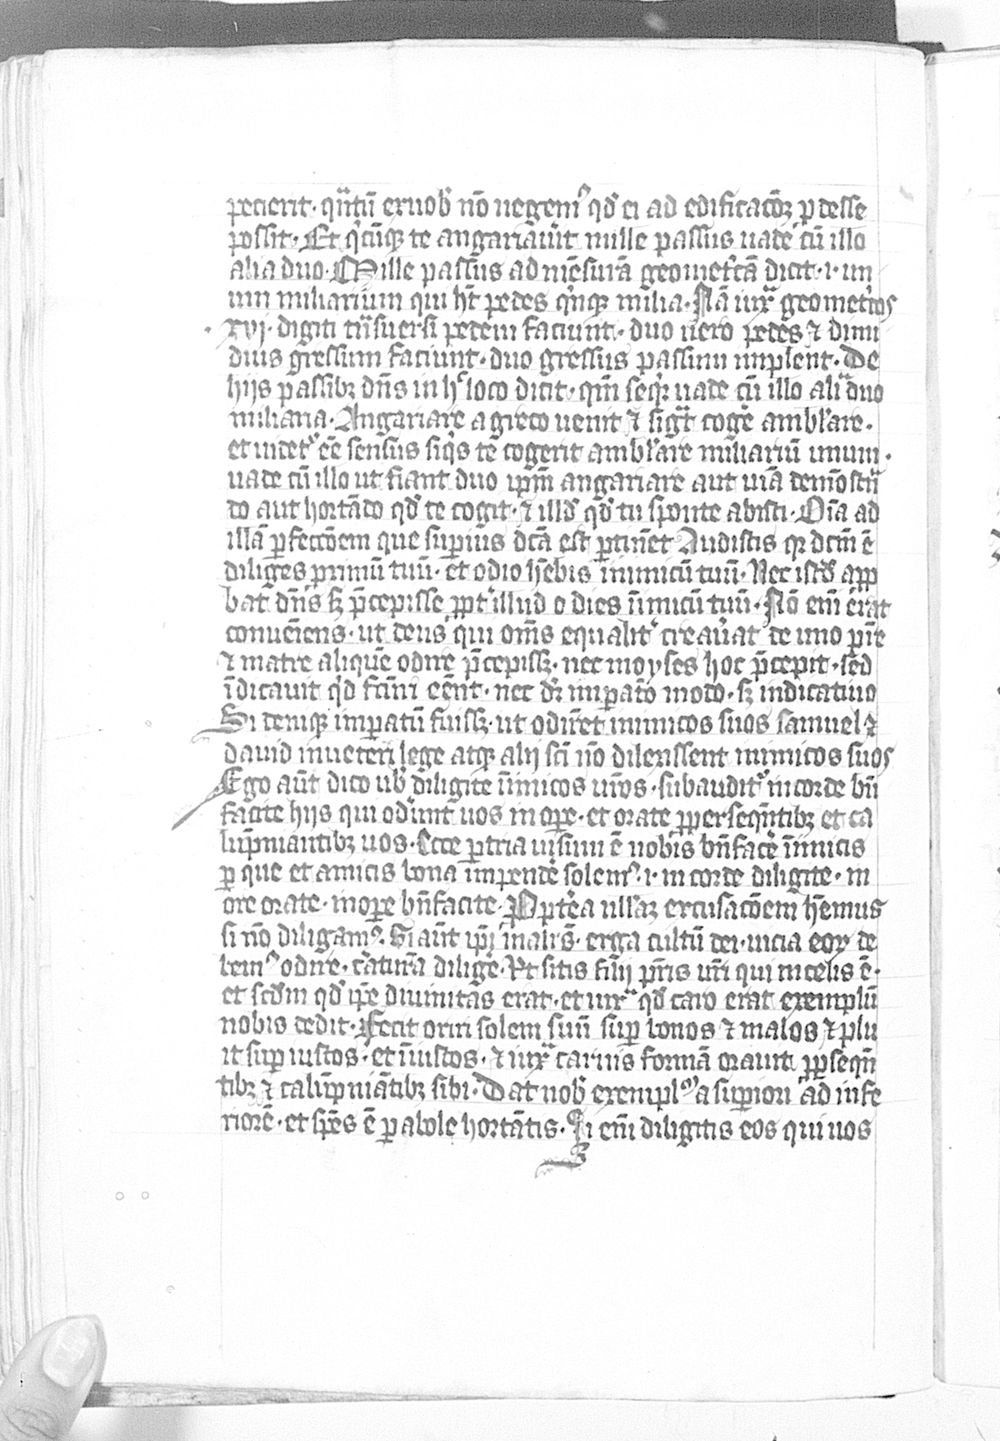 pecierit · qn̄tū ex uob̄ nō negem᷒ qd̄ ei ad edificacōꝫ ꝓdesse
possit · Et q̄cūqꝫ te angariauīt mille passus uade cū illo
alia duo · Mille passus ad mēsurā geomet̄cā dicit · i · un
um miliarium qui ht̄ pedes q̄nqꝫ milia · Nā iux̄ geomet̄cos
xvj · digiti tn̄suersi pedem faciunt · duo uero pedes ⁊ dimi
dius gressum faciunt · duo gressus passum implent · De
hijs passibꝫ dn̄s in h᷒ loco dicit · qm̄ seqr̄ uade cū illo alia duo
miliaria · Angariare a greco uenit ⁊ sigt̄ cogē ambl̄are ·
et uidet᷒ eē sensus siq̄s te cogerit ambl̄are miliariū unum ·
uade cū illo ut fiant duo ip̄m angariare aut uiā demōstn̄
do aut hortādo qd̄ te cogit · ⁊ illd̄ qd̄ tu sponte abisti · Oīa ad
illā ꝑfeccōem que superius dc̄ā est ꝑtinēt Audistis qꝛ dc̄m ē
diliges primū tuū · et odio hēbis inimicū tuū · Nec istd̄ app
bat dn̄s sꝫ p̄cepisse ꝓpt̄ illud odies īimicū tuū · Nō em̄ erat
conueniens · ut deus qui om̄s equalit̄ creauāt de uno pr̄e
⁊ matre aliquē odire p̄cepissꝫ · nec moyses hoc p̄cepit · sed
īdicauit qd̄ fc̄uri eēnt · nec dr̄ imperatō modo · sꝫ indicatiuo
Si deniqꝫ imperatū fuissꝫ · ut odirēt inimicos suos samuel ⁊
dauid in ueteri lege atqꝫ alij sc̄i nō dilexissent inimicos suos
Ego aūt dico uob̄ diligite īimicos ur̄os · subaudit᷒ in corde bn̄
facite hijs qui oderunt uos in ope · et orate ꝓ persequētibꝫ et ca
lūpniantibꝫ uos · Ecce per tria uisum ē nobis bn̄facē īimicis
ꝑ que et amicis bona impendē solem᷒ · i · in corde diligite · in
ore orate · in ope bn̄facite · Propterea ullaꝫ excusacōem hēmus
si nō diligam᷒ · Si aūt ip̄i mali sn̄ · erga cultū dei · uicia eoꝝ de
bem᷒ odire · c̄aturā diligē · Vt sitis filij pr̄is ur̄i qui in celis ē ·
et scd̄m qd̄ ip̄e diuinitas erat · et iuxª qd̄ caro erat exemplū
nobis dedit · Fecit oriri solem suū super bonos ⁊ malos ⁊ plu
it super iustos · et īiustos · ⁊ iuxª carnis formā orauit ꝓ perseqn̄
tibꝫ ⁊ calūpniātibꝫ sibi · Dat nob̄ exempl᷒ a superiori ad infe
riorē · et sp̄es ē parabole hortātis · Si em̄ diligitis eos qui uos